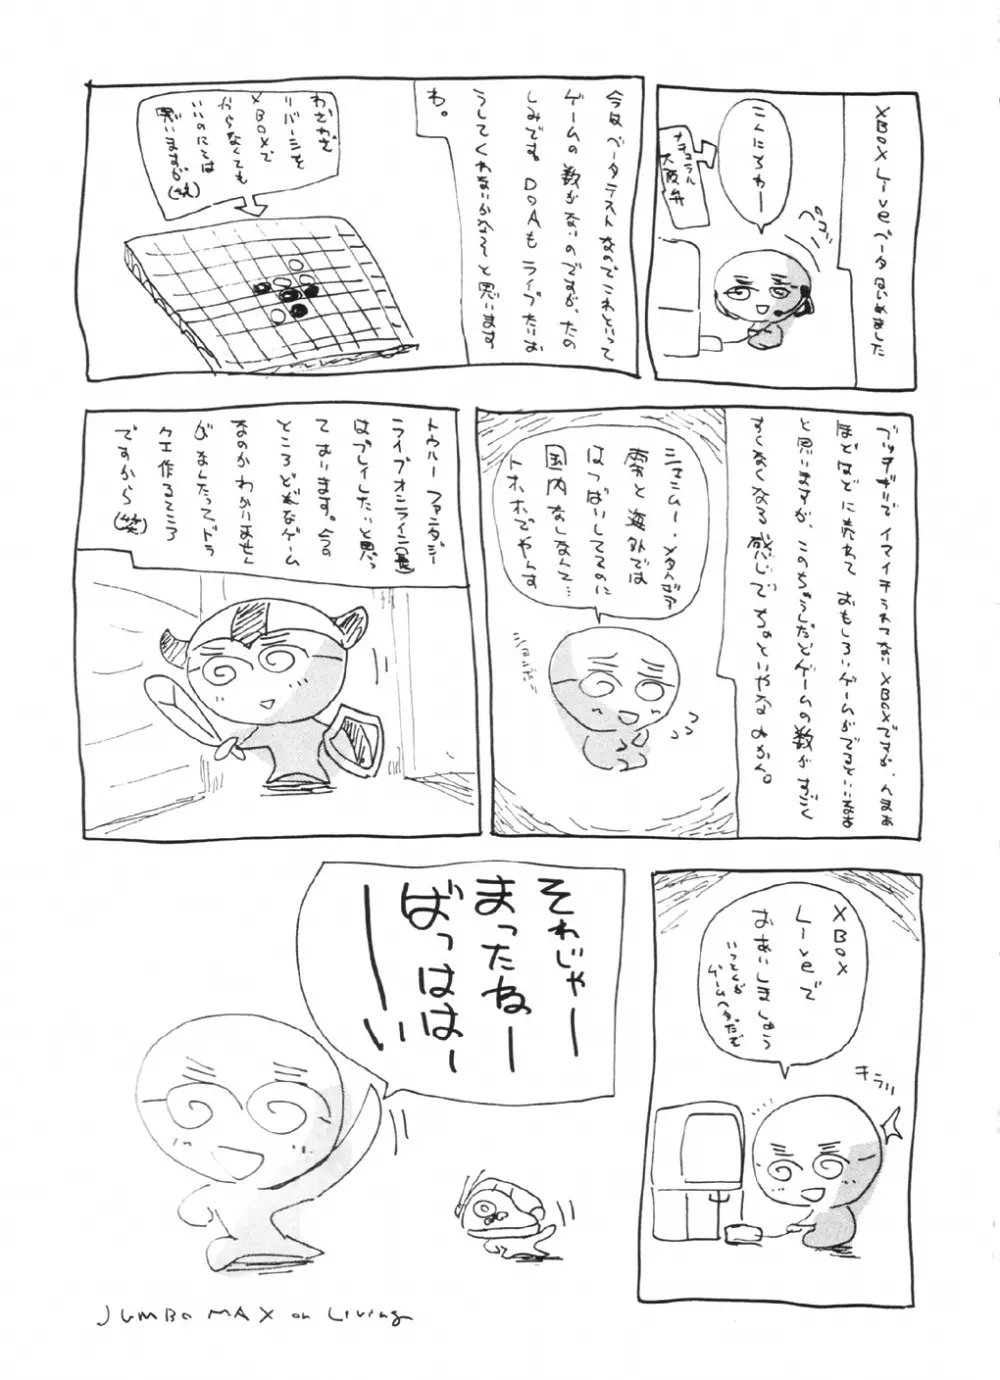 XBOX Liveベータはじめました
こんにちわー
ナチュラル
大阪弁
ペコ
今はベータテストなのでこれといって
ゲームの数がないのですが、たの
しみです。DOAもライブたいお
うしてくれないかな〜と思います
わ。
わざわざ
リバーシを
XBOXで
やらなくても
いいのにとは
思いますが(笑)
ブッチギリでイマイチうれてないXBOXですが、
ほどほどに売れて おもしろいゲームがでるといいなあ
と思いますが、このちょうしだとゲームの数がすごく
すくなくなる感じでちょといやなよかん。
シェンムー・メタルギア
南と海外では
はつばいしてるのに
国内なしなんて…
トホホでやんす
トゥルーファンタジー
ライブオンライン
はプレイしたいと思っ
ております。今の
ところどんなゲーム
なのかわかりません
がなんたってドラ
クエ作るところ
ですから(笑)
XBOX
Liveで
おあいしましょう
いっとくが
ゲームヘタだぞ
キラ
それじゃー
まったねー
ばっははー
ーい
JUMBO MAX on Living